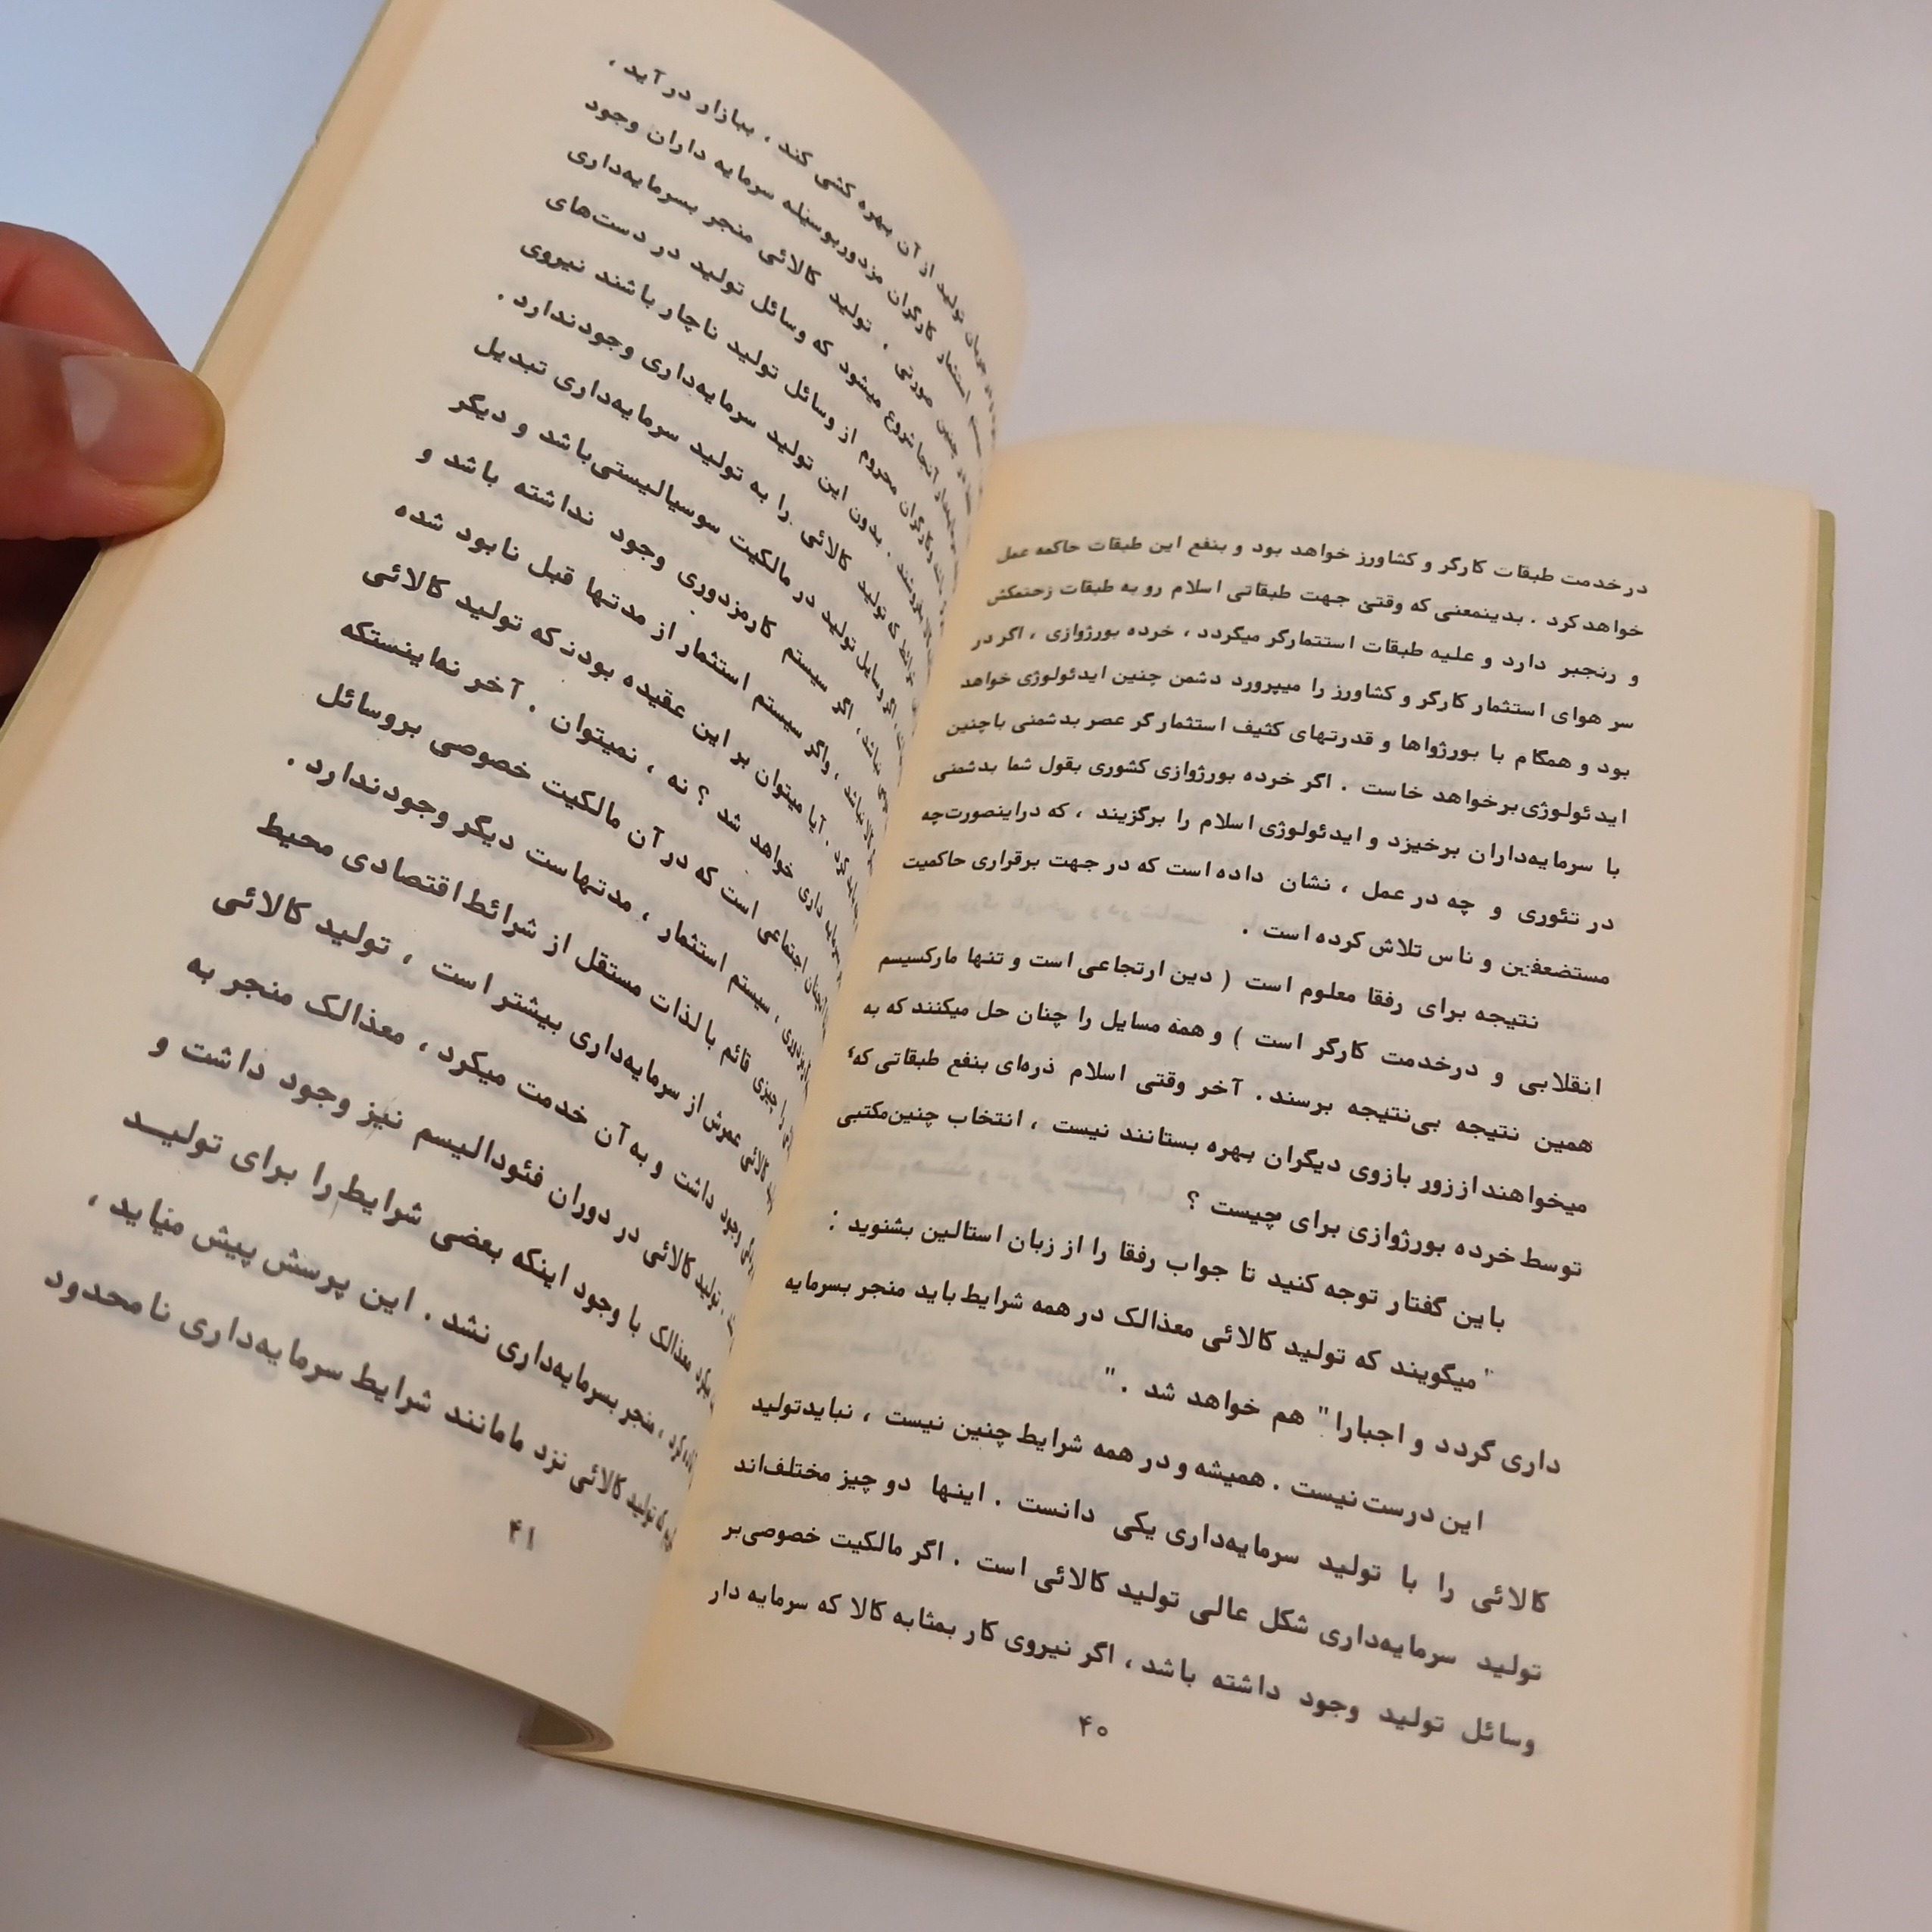 در خدمت طبقات کارگر و کشاورز خواهد بود و بنفع این طبقات حاکمه عمل
خواهد کرد . بدینمعنی که وقتی جهت طبقاتی اسلام رو به طبقات زحتمکش
و رنجبر دارد و علیه طبقات استتمارگر میگردد ، خرده بورژوازی ، اگر در
سر هوای استثمار کارگر و کشاورز را میپرورد دشمن چنین ایدئولوژی خواهد
بود و همگام با بورژواها و قدرتهای کثیف استثمارگر عصر بدشمنی باچنین
ایدئولوژی برخواهد خاست . اگر خرده بورژوازی کشوری بقول شما بدشمنی
با سرمایه‌داران برخیزد و ایدئولوژی اسلام را برگزیند ، که دراینصورت‌چه
در تئوری و چه در عمل ، نشان داده است که در جهت برقراری حاکمیت
مستضعفین و ناس تلاش کرده است .
نتیجه برای رفقا معلوم است ( دین ارتجاعی است و تنها مارکسیسم
انقلابی و درخدمت کارگر است ) و همه مسایل را چنان حل میکنند که به
همین نتیجه بی‌نتیجه برسند . آخر وقتی اسلام ذره‌ای بنفع طبقاتی که
میخواهند از زور بازوی دیگران بهره بستانند نیست ، انتخاب چنین‌مکتبی
توسط خرده بورژوازی برای چیست ؟
باین گفتار توجه کنید تا جواب رفقا را از زبان استالین بشنوید :
" میگویند که تولید کالائی معذالک در همه شرایط باید منجر بسرمایه
داری گردد و اجبارا" هم خواهد شد . "
این درست نیست . همیشه و در همه شرایط چنین نیست ، نبایدتولید
کالائی را با تولید سرمایه‌داری یکی دانست . اینها دو چیز مختلف‌اند
تولید سرمایه‌داری شکل عالی تولید کالائی است . اگر مالکیت خصوصی‌بر
وسائل تولید وجود داشته باشد ، اگر نیروی کار بمثابه کالا که سرمایه دار
۴۰
تولید از آن بهره کشی کند ، ببازار در آید ،
استثمار کارگران مزدوربوسیله سرمایه داران وجود
چنین صورتی ، تولید کالائی منجر بسرمایه‌داری
آنجا شروع میشود که وسائل تولید در دست‌های
کارگران محروم از وسائل تولید ناچار باشند نیروی
بفروشند . بدون این تولید سرمایه‌داری وجودندارد .
که تولید کالائی را به تولید سرمایه‌داری تبدیل
اگر وسایل تولید در مالکیت سوسیالیستی‌باشد و دیگر
نباشد ، اگر سیستم کارمزدوری وجود نداشته باشد و
کالا نباشد ، واگر سیستم استثمار از مدتها قبل نابود شده
کرد . آیا میتوان بر این عقیده بودن که تولید کالائی
داری خواهد شد ؟ نه ، نمیتوان . آخر نماینستکه
اجتماعی است که در آن مالکیت خصوصی بروسائل
سیستم استثمار ، مدتهاست دیگر وجودندارد .
را چیزی قائم بالذات مستقل از شرائط اقتصادی محیط
کالائی عمرش از سرمایه‌داری بیشتر است ، تولید کالائی
وجود داشت و به آن خدمت میکرد ، معذالک منجر به
تولید کالائی در دوران فئودالیسم نیز وجود داشت و
معذالک با وجود اینکه بعضی شرایط را برای تولیـد
کرد ، منجر بسرمایه‌داری نشد . این پرسش پیش میاید ،
که تولید کالائی نزد ما مانند شرایط سرمایه‌داری نامحدود
۴۱